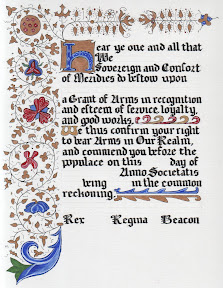 Hear ye one and all that
We
Sovereign and Consort
of Meridies do bestow upon
a Grant of Arms in recognition
and esteem of service, loyalty,
and good works.
We thus confirm your right
to bear Arms in Our Realm,
and commend you before the
populace on this day of
Anno Societatis
being in the common
reckoning.
Rex Regina Beacon